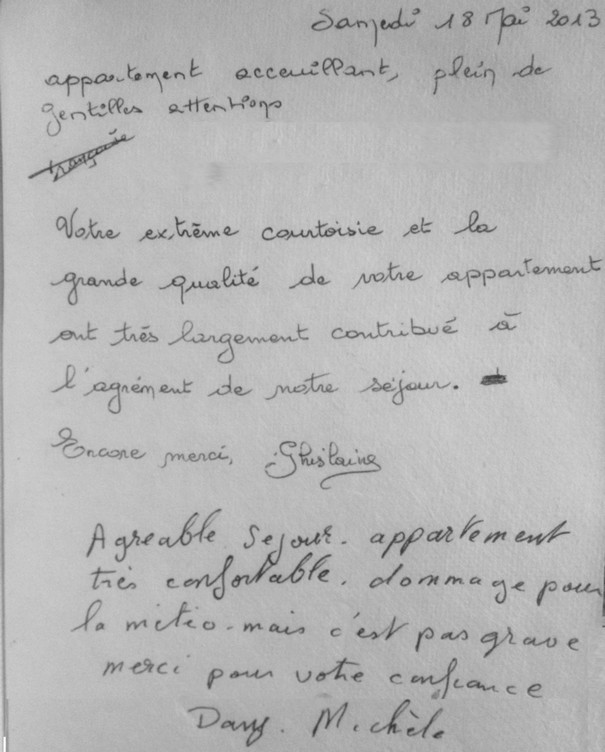 Samedi 18 Mai 2013
appartement acceuillant, plein de
gentilles attentions
française
Votre extrême courtoisie et la
grande qualité de votre appartement
ont très largement contribué à
l'agrément de notre séjour.
Encore merci, Ghislaine
Agreable Sejour. appartement
très confortable. dommage pour
la météo. mais c'est pas grave
merci pour votre confiance
Dany. Michèle